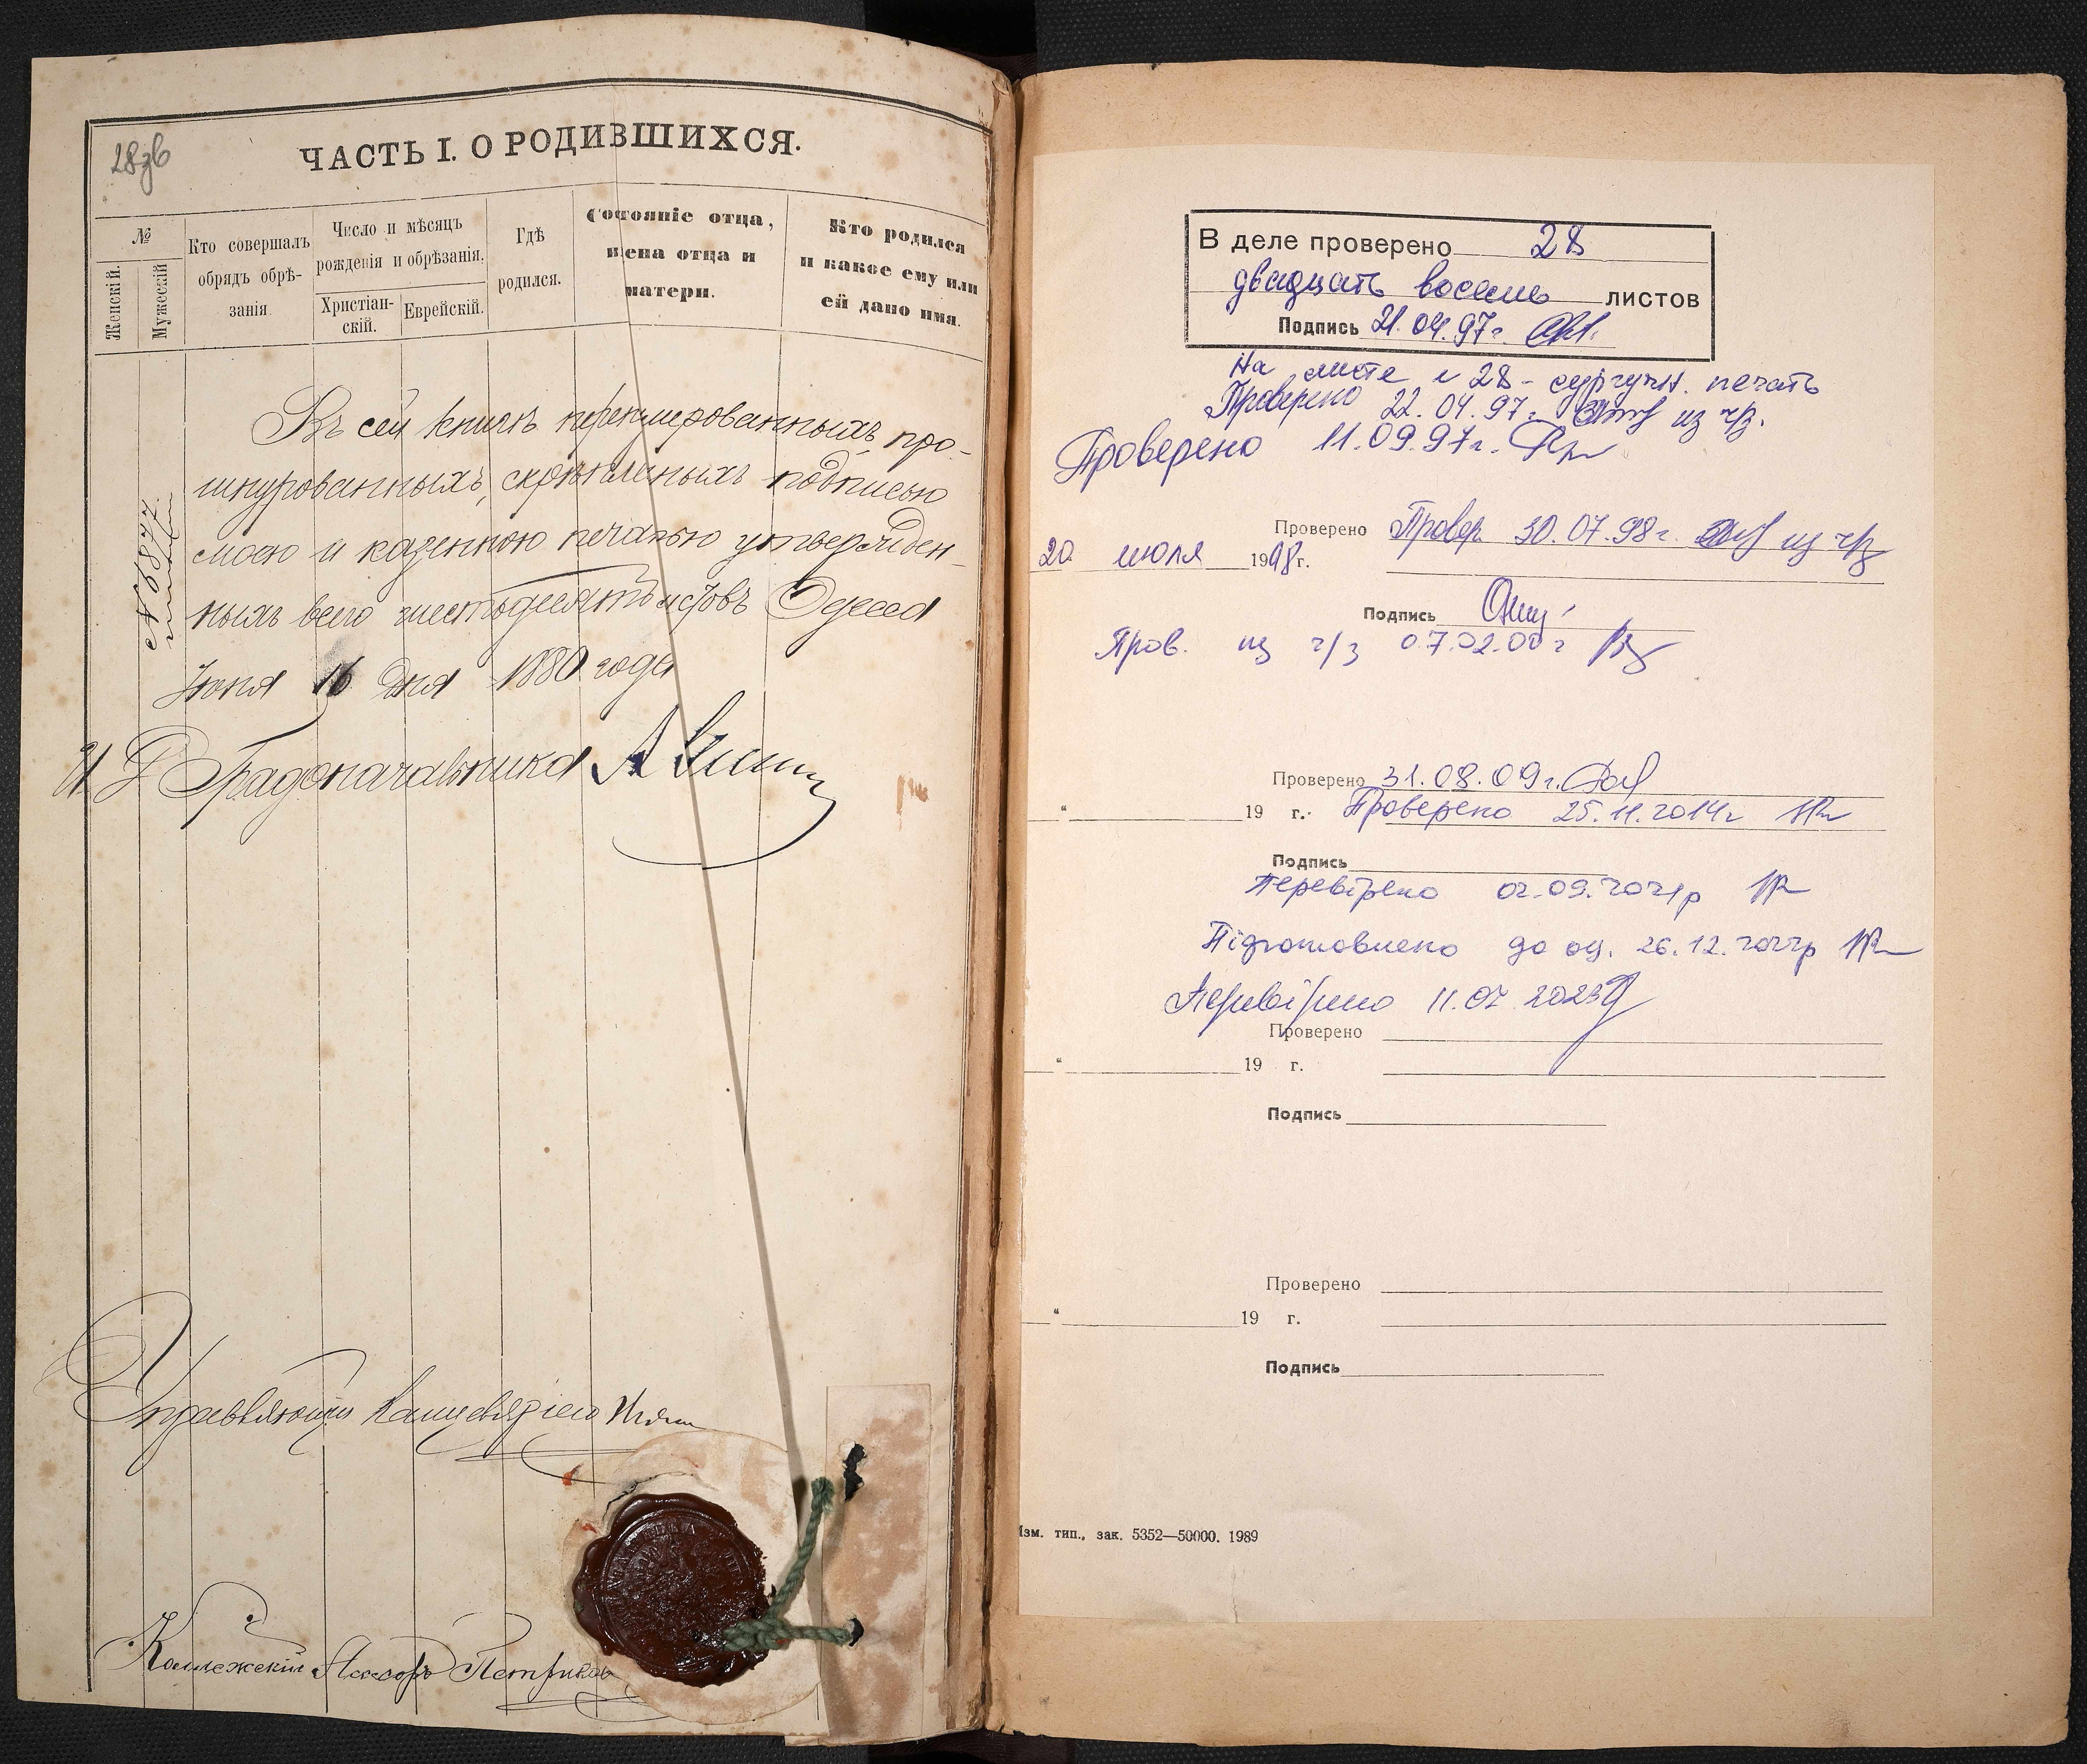 28зв
ЧАСТЬ I. О РОДИВШИХСЯ.
№
Женскій.
Мужескій
Кто совершалъ
обрядъ обрѣ-
занія.
Число и мѣсяцъ
рожденія и обрѣзанія.
Христіан-
скій.
Еврейскій.
Гдѣ
родился.
Состояніе отца,
имена отца и
матери.
Кто родился
и какое ему или
ей дано имя.
Въ сей книгѣ перенумерованныхъ, про-
шнурованныхъ, скрѣпленыхъ подписью
моею и казенною печатью утвержден-
ныхъ всего шестьдесятъ Одесса
Июня 16 дня 1880 года
№ 6877.
И Д Градоначальника
Управляющій Канцеляріею
Коллежскій Асесоръ Петриков
В деле проверено 28
двадцать восемь листов
Подпись 21.04.97г.
На листе № 28 - сургучн. печать
Проверено 22.04.97г. из ч/з.
Проверено 11.09.97г.
Проверено Провер. 30.07.98г. из ч/з
20 июля 1998г.
Подпись
Пров. из ч/з 07.02.00г
Проверено 31.08.09г.
“ 19 г. Проверено 25.11.2014г
Подпись
Перевірено 02.09.2021р
Підготовлено до оц. 26.12.2022р
Перевірено 11.07.2023
Проверено
“ 19 г.
Подпись
Проверено
“ 19 г.
Подпись
Изм. тип., зак. 5352—50000. 1989